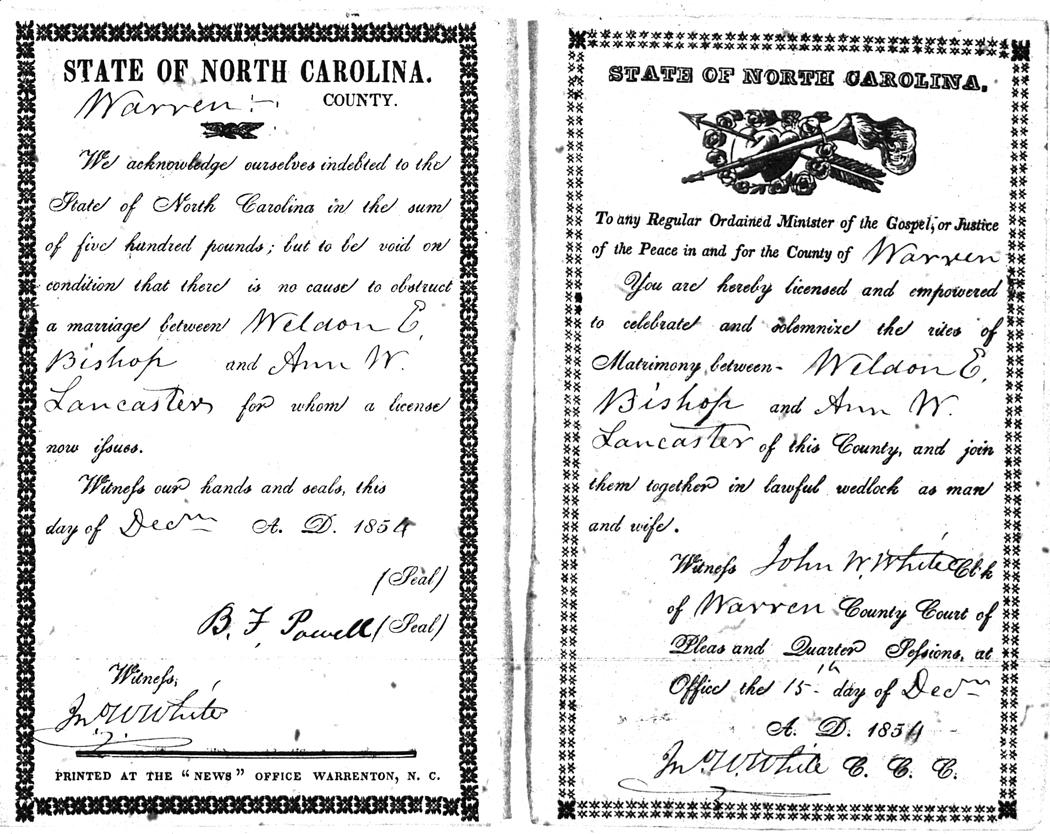 STATE OF NORTH CAROLINA.
Warren COUNTY.
We acknowledge ourselves indebted to the
State of North Carolina in the sum
of five hundred pounds; but to be void on
condition that there is no cause to obstruct
a marriage between Weldon E.
Bishop and Ann W.
Lancaster for whom a license
now issues.
Witness our hands and seals, this
day of Decm A. D. 1854
(Seal)
B. F. Powell (Seal)
Witness,
Jno W White
PRINTED AT THE "NEWS" OFFICE WARRENTON, N. C.
STATE OF NORTH CAROLINA,
To any Regular Ordained Minister of the Gospel, or Justice
of the Peace in and for the County of Warren
You are hereby licensed and empowered
to celebrate and solemnize the rites of
Matrimony, between Weldon E.
Bishop and Ann W.
Lancaster of this County, and join
them together in lawful wedlock as man
and wife.
Witness John W. White Clk
of Warren County Court of
Pleas and Quarter Sessions, at
Office the 15th day of Decm
A. D. 1854
Jno W. White C. C. C.